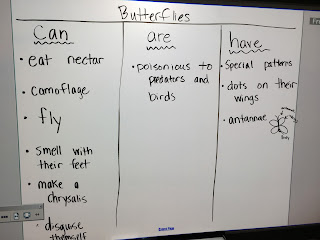 Butterflies
Can
• eat nectar
• camoflage
• fly
• smell with
their feet
• make a
chrysalis
• disguise
themself
are
• poisonious to
predators and
birds
have
• special patterns
• dots on their
wings
• antannae